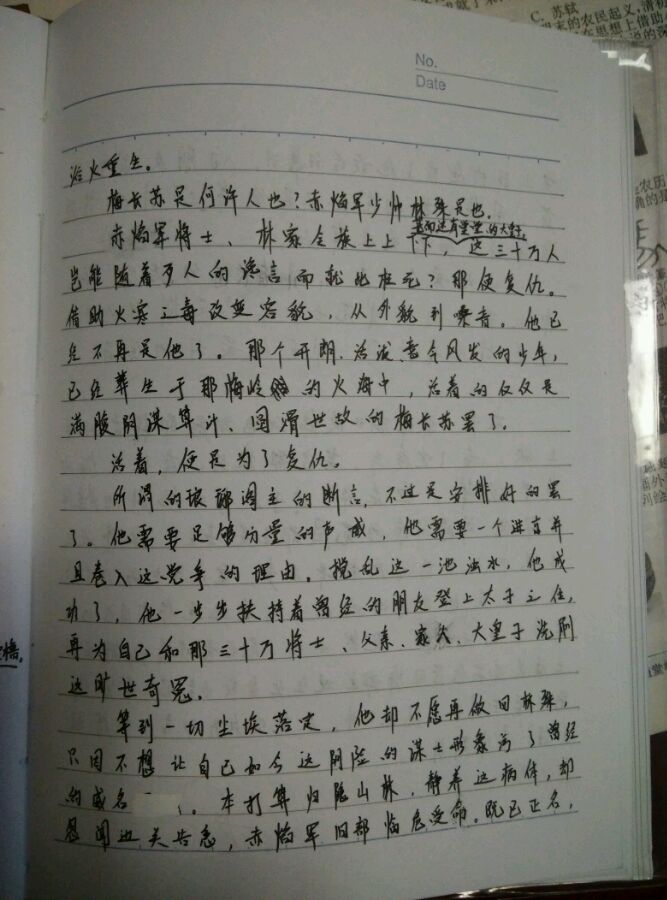 C. 苏轼
末的农民起义,清初
在思想上借助
No.
Date
浴火重生。
梅长苏是何许人也?赤焰军少帅林殊是也。
赤焰军将士、林家全族上上下下,甚而还有皇室的大皇子,这三十万人
岂能随着歹人的谗言而就此枉死?那便复仇。
借助火寒之毒改变容貌,从外貌到嗓音。他已
经不再是他了。那个开朗、活泼、意气风发的少年,
已经葬生于那梅岭的火海中,活着的仅仅是
满腹阴谋算计、圆滑世故的梅长苏罢了。
活着,便是为了复仇。
所谓的琅琊阁主的断言,不过是安排好的罢
了。他需要足够分量的声威,他需要一个进京并
且卷入这党争的理由。搅乱这一池浊水,他成
功了,他一步步扶持着曾经的朋友登上太子之位,
再为自己和那三十万将士、父亲、家人、大皇子洗刷
这旷世奇冤。
等到一切尘埃落定,他却不愿再做回林殊,
只因不想让自己如今这阴险的谋士形象污了曾经
的威名。本打算归隐山林,静养这病体,却
忽闻边关告急,赤焰军旧部临危受命。既已正名,